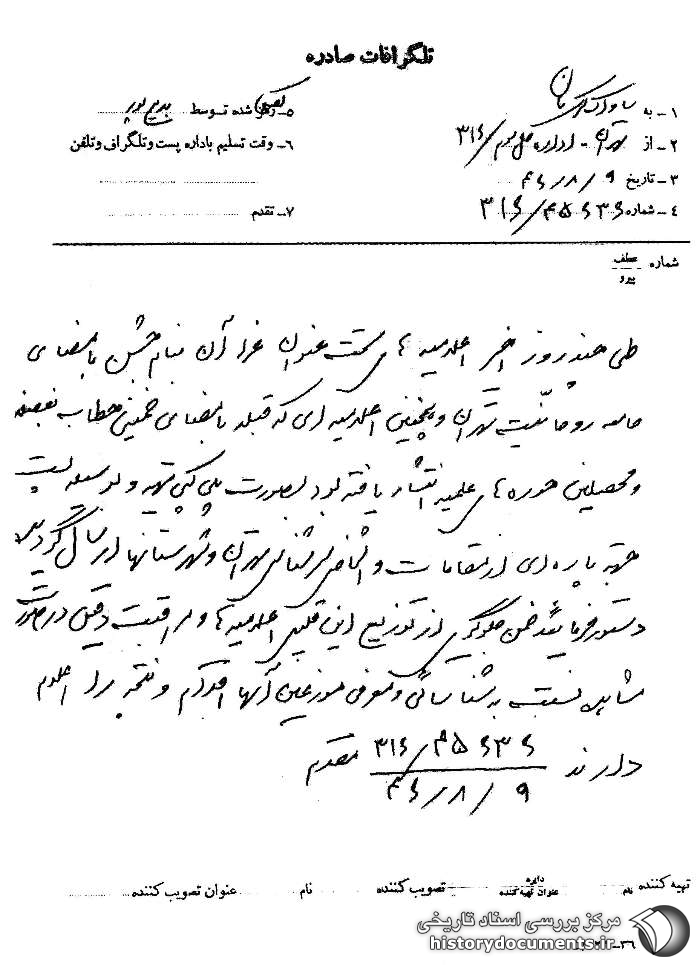 تلگرافات صادره
۱ـ به ساواک
۲ـ از تهران - اداره کل سوم / ۳۱۶
۳ـ تاریخ ۴۶/۸/۹
۴ـ شماره ۳۱۶/۴۵۶۳۶
۵ـ شده توسط
۶ـ وقت تسلیم باداره پست وتلگراف وتلفن
۷ـ تقدم
شماره عطف
پیرو
طی چند روز اخیر اعلامیه هائی تحت عنوان عزا آن بنام جشن بامضای
جامعه روحانیت تهران و همچنین اعلامیه ای که قبلا بامضای خمینی خطاب بفضلا
و محصلین حوزه های علمیه انتشار یافته بود بصورت پلی کپی تهیه و بوسیله پست
جهت پاره ای از مقامات و اشخاص سرشناس تهران و شهرستانها ارسال گردیده
دستور فرمایند ضمن جلوگیری از توزیع این قبیل اعلامیه ها و مراقبت دقیق در صورت
مشاهده نسبت به شناسائی و معرفی موزعین آنها اقدام و نتیجه را اعلام
دارند ۳۱۶/۴۵۶۳۶ مقدم
۴۶/۸/۹
تهیه کننده نام دایره عنوان تهیه کننده تصویب کننده نام عنوان تصویب کننده
مرکز بررسی اسناد تاریخی
historydocuments.ir